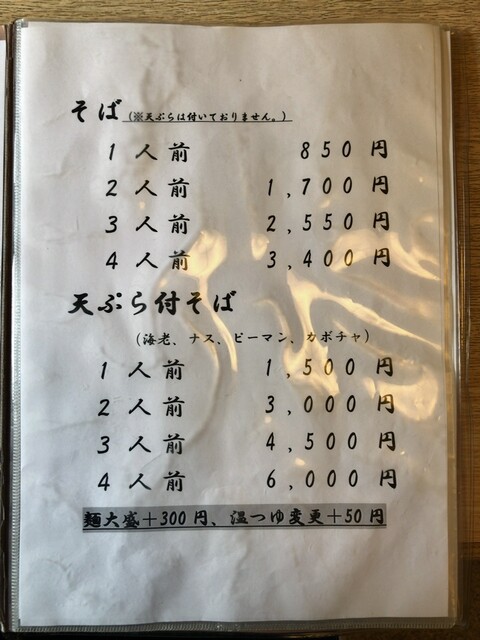 そば (※天ぷらは付いておりません。)
1人前 850円
2人前 1,700円
3人前 2,550円
4人前 3,400円
天ぷら付そば
(海老、ナス、ピーマン、カボチャ)
1人前 1,500円
2人前 3,000円
3人前 4,500円
4人前 6,000円
麺大盛+300円、温つゆ変更+50円